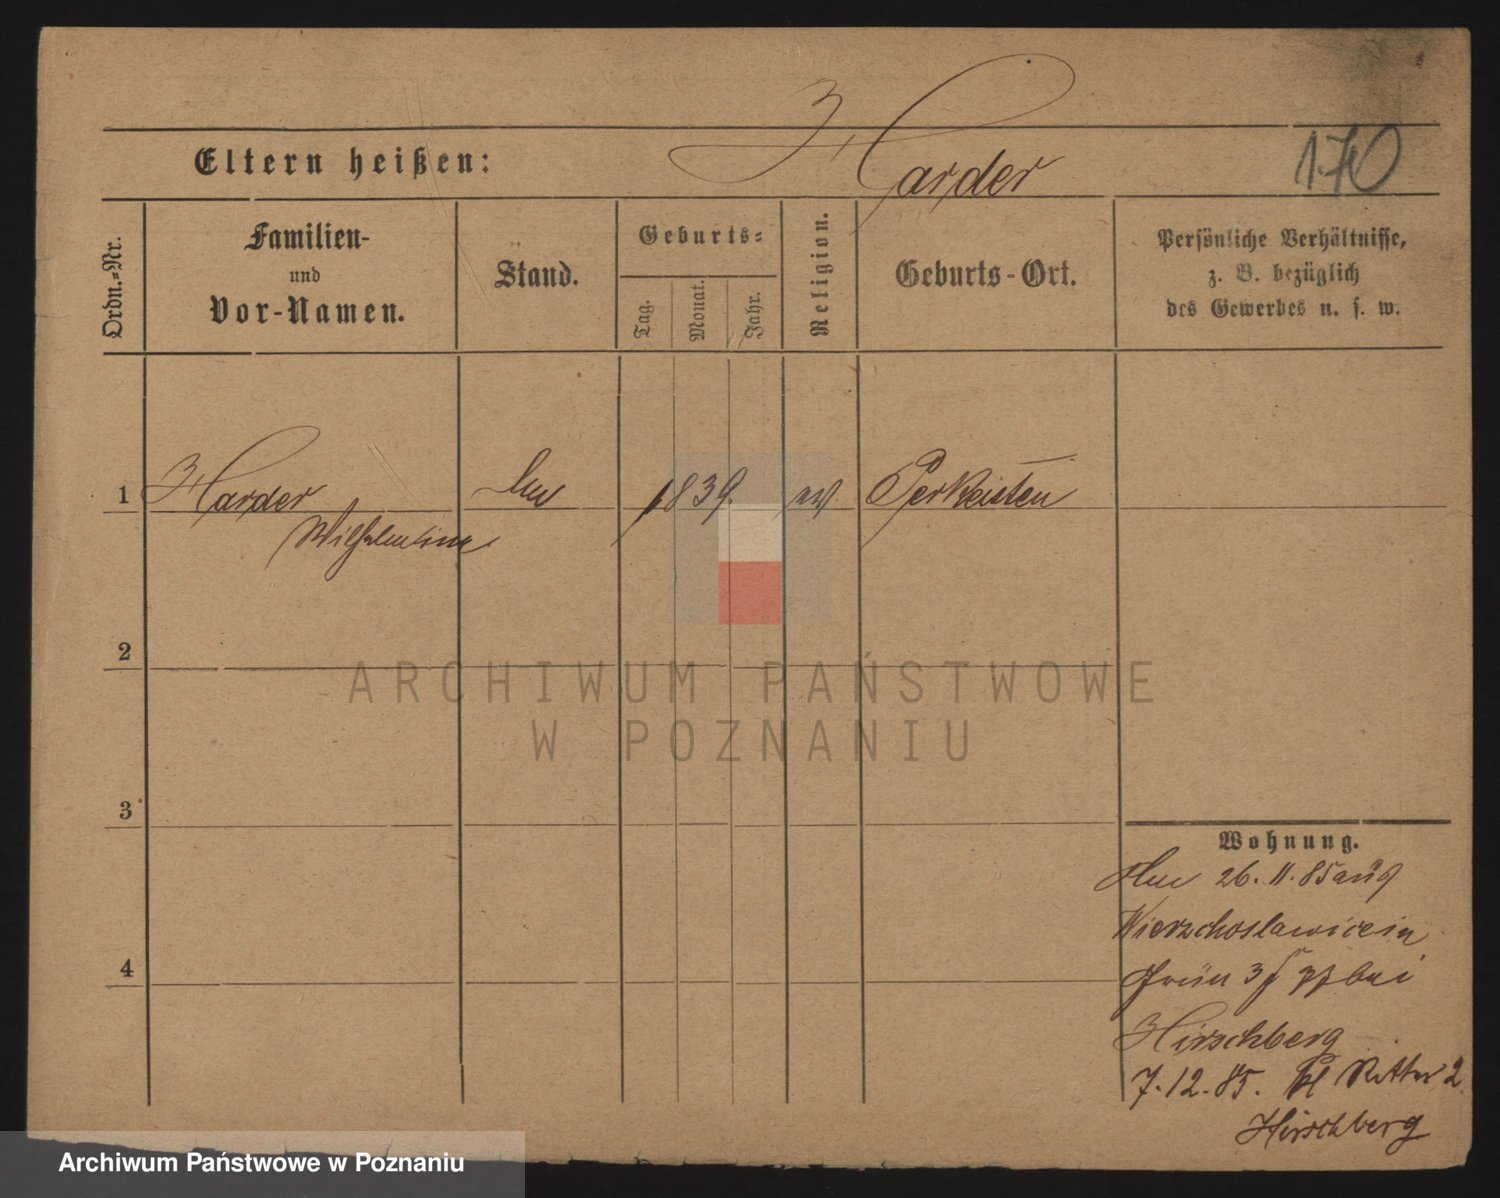 Harder
170
Eltern heißen:
Ordn.-Nr.
Familien-
und
Vor-Namen.
Stand.
Geburts-
Tag.
Monat.
Jahr.
Religion.
Geburts-Ort.
Persönliche Verhältnisse,
z. B. bezüglich
des Gewerbes u. s. w.
1
Harder
Wilhelmine
1839.
ev.
Perkeisten
2
3
4
Wohnung.
26. 11. 85 aus
Wierzchoslawice in
Grün 3 bei
Hirschberg
7. 12. 85. Kl Ritter 2
Hirschberg
ARCHIWUM PAŃSTWOWE
W POZNANIU
Archiwum Państwowe w Poznaniu